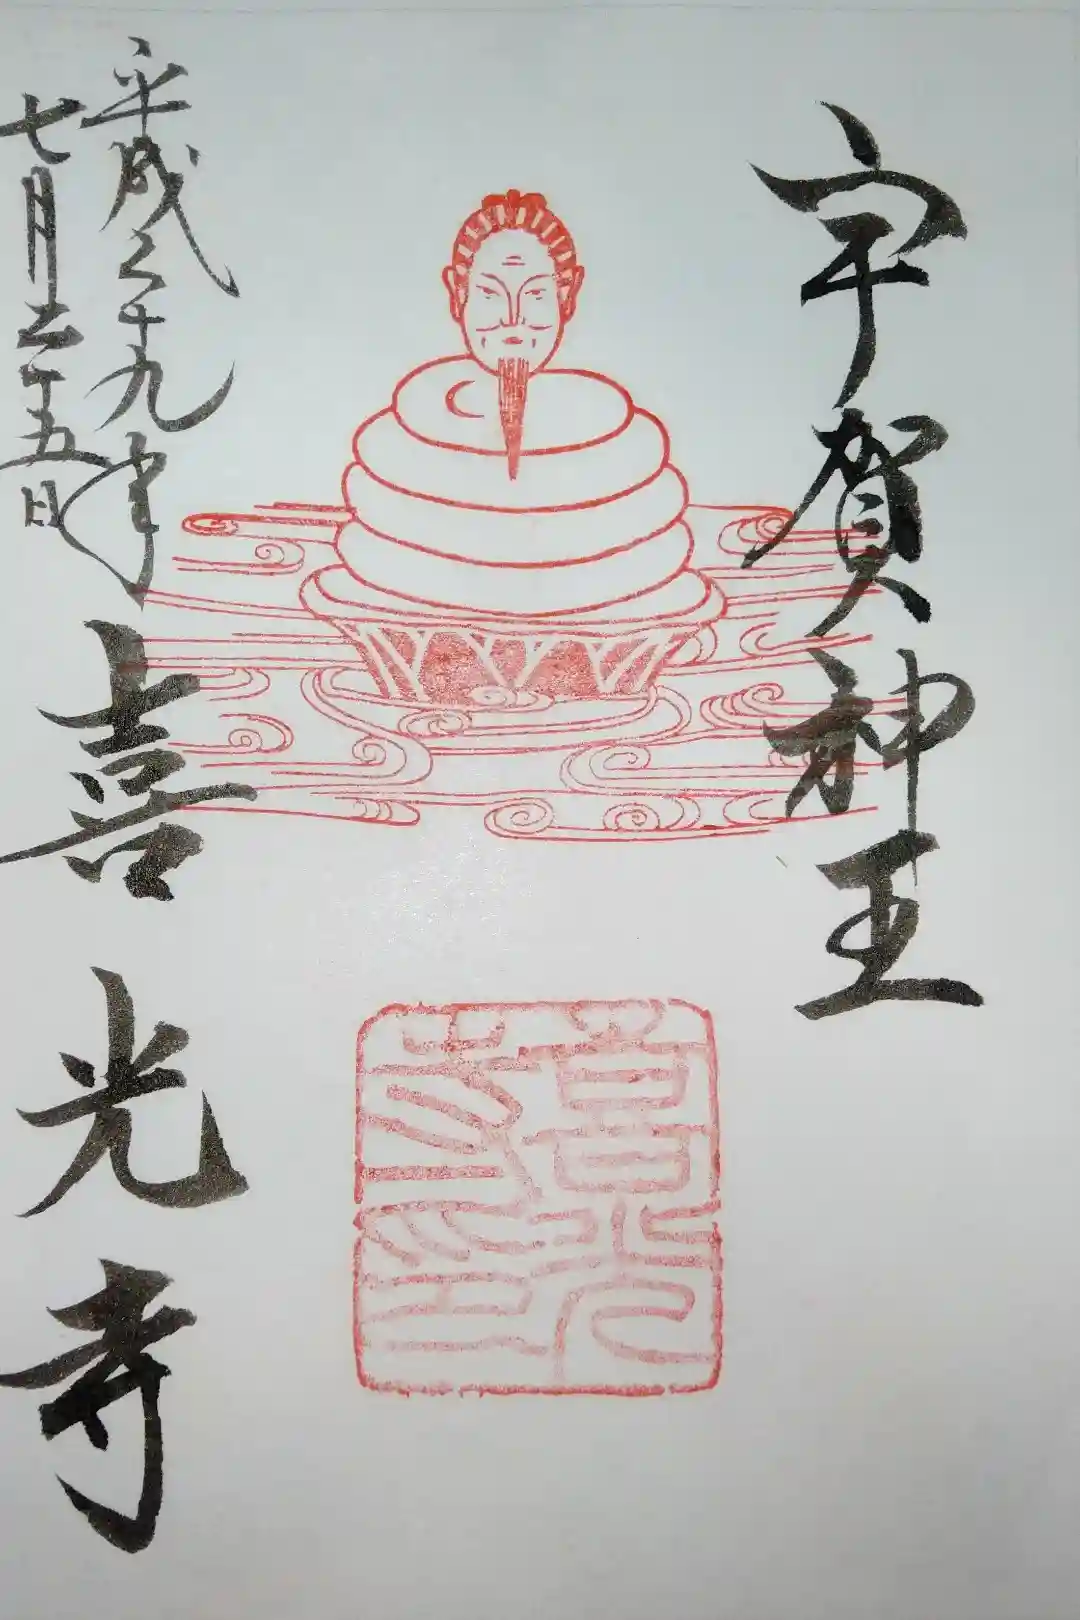 宇賀神王
平成二十九年
七月二十五日
喜光寺